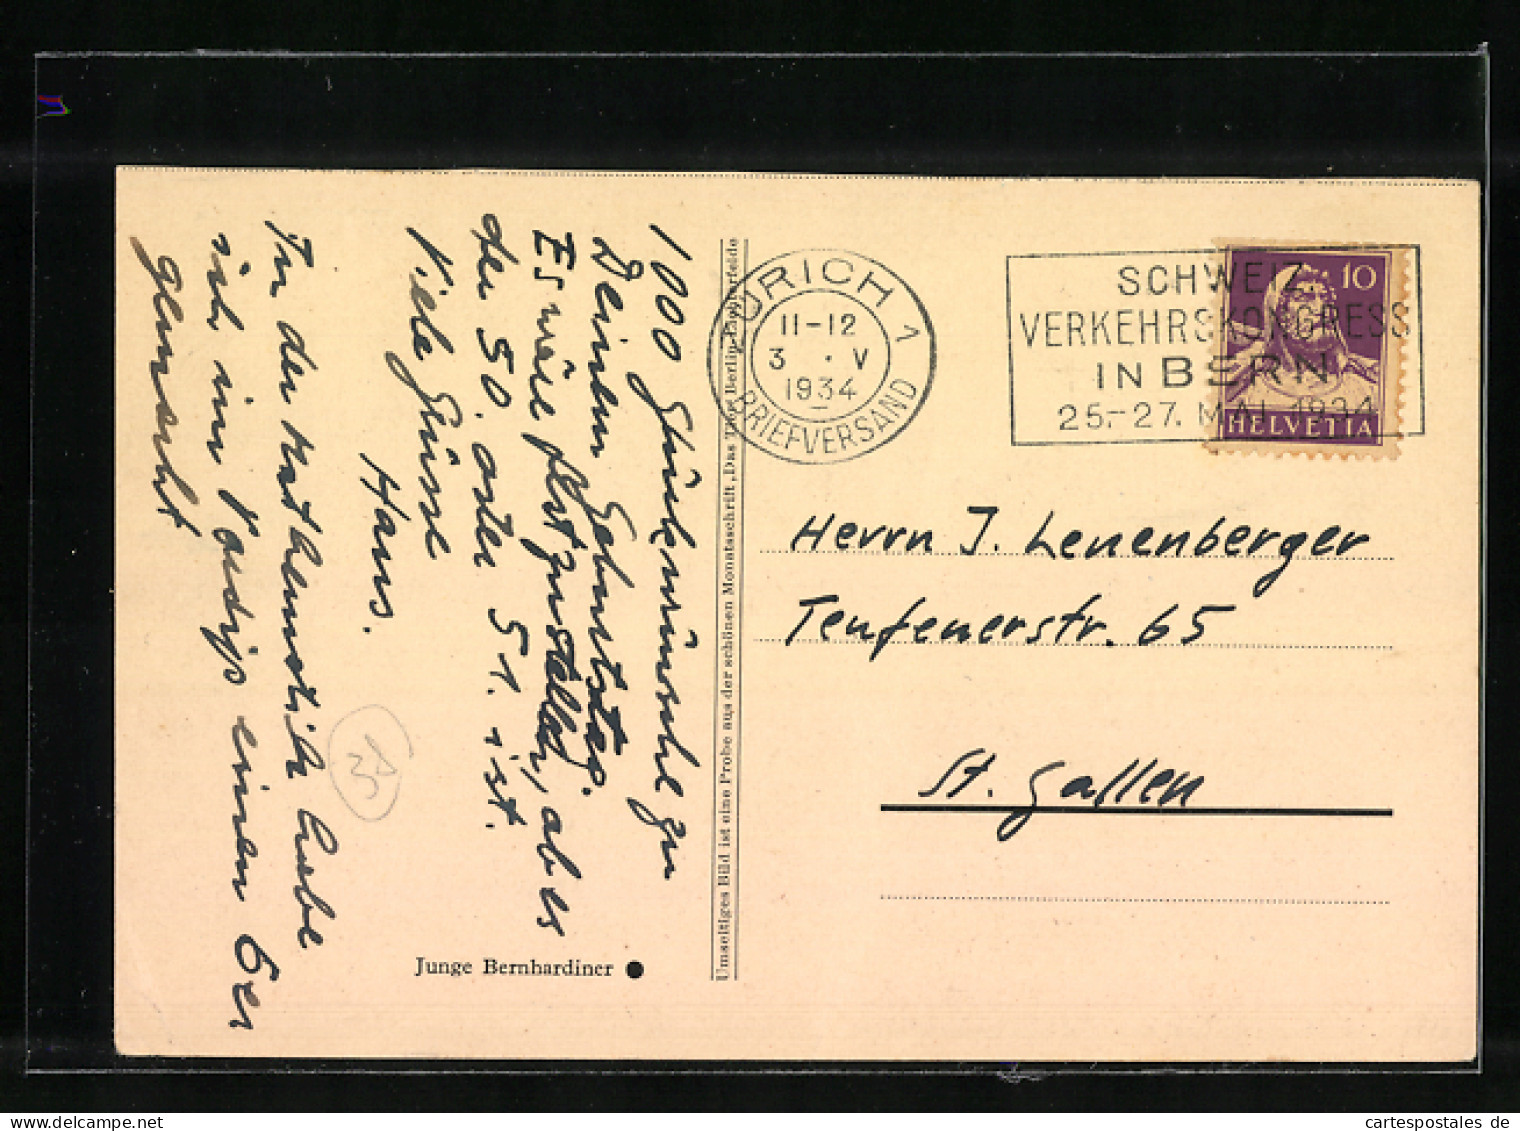 1000 Glückwünsche zu
Deinem Geburtstag.
Es wäre festzustellen, ob es
der 50. oder 51. ist.
Viele Grüsse
Hans.
In der Mathematik habe
ich im Vordip einen 6er
gemacht
38
Junge Bernhardiner
Umseitiges Bild ist eine Probe aus der schönen Monatsschrift „Das Tier“ Berlin-Lichterfelde
ZÜRICH 1
11-12
3 . V
1934
BRIEFVERSAND
SCHWEIZ.
VERKEHRSKONGRESS
IN BERN
25.-27. MAI 1934
10
HELVETIA
Herrn J. Leuenberger
Teufenerstr. 65
St. Gallen
cartespostales de
www.delcampe.net